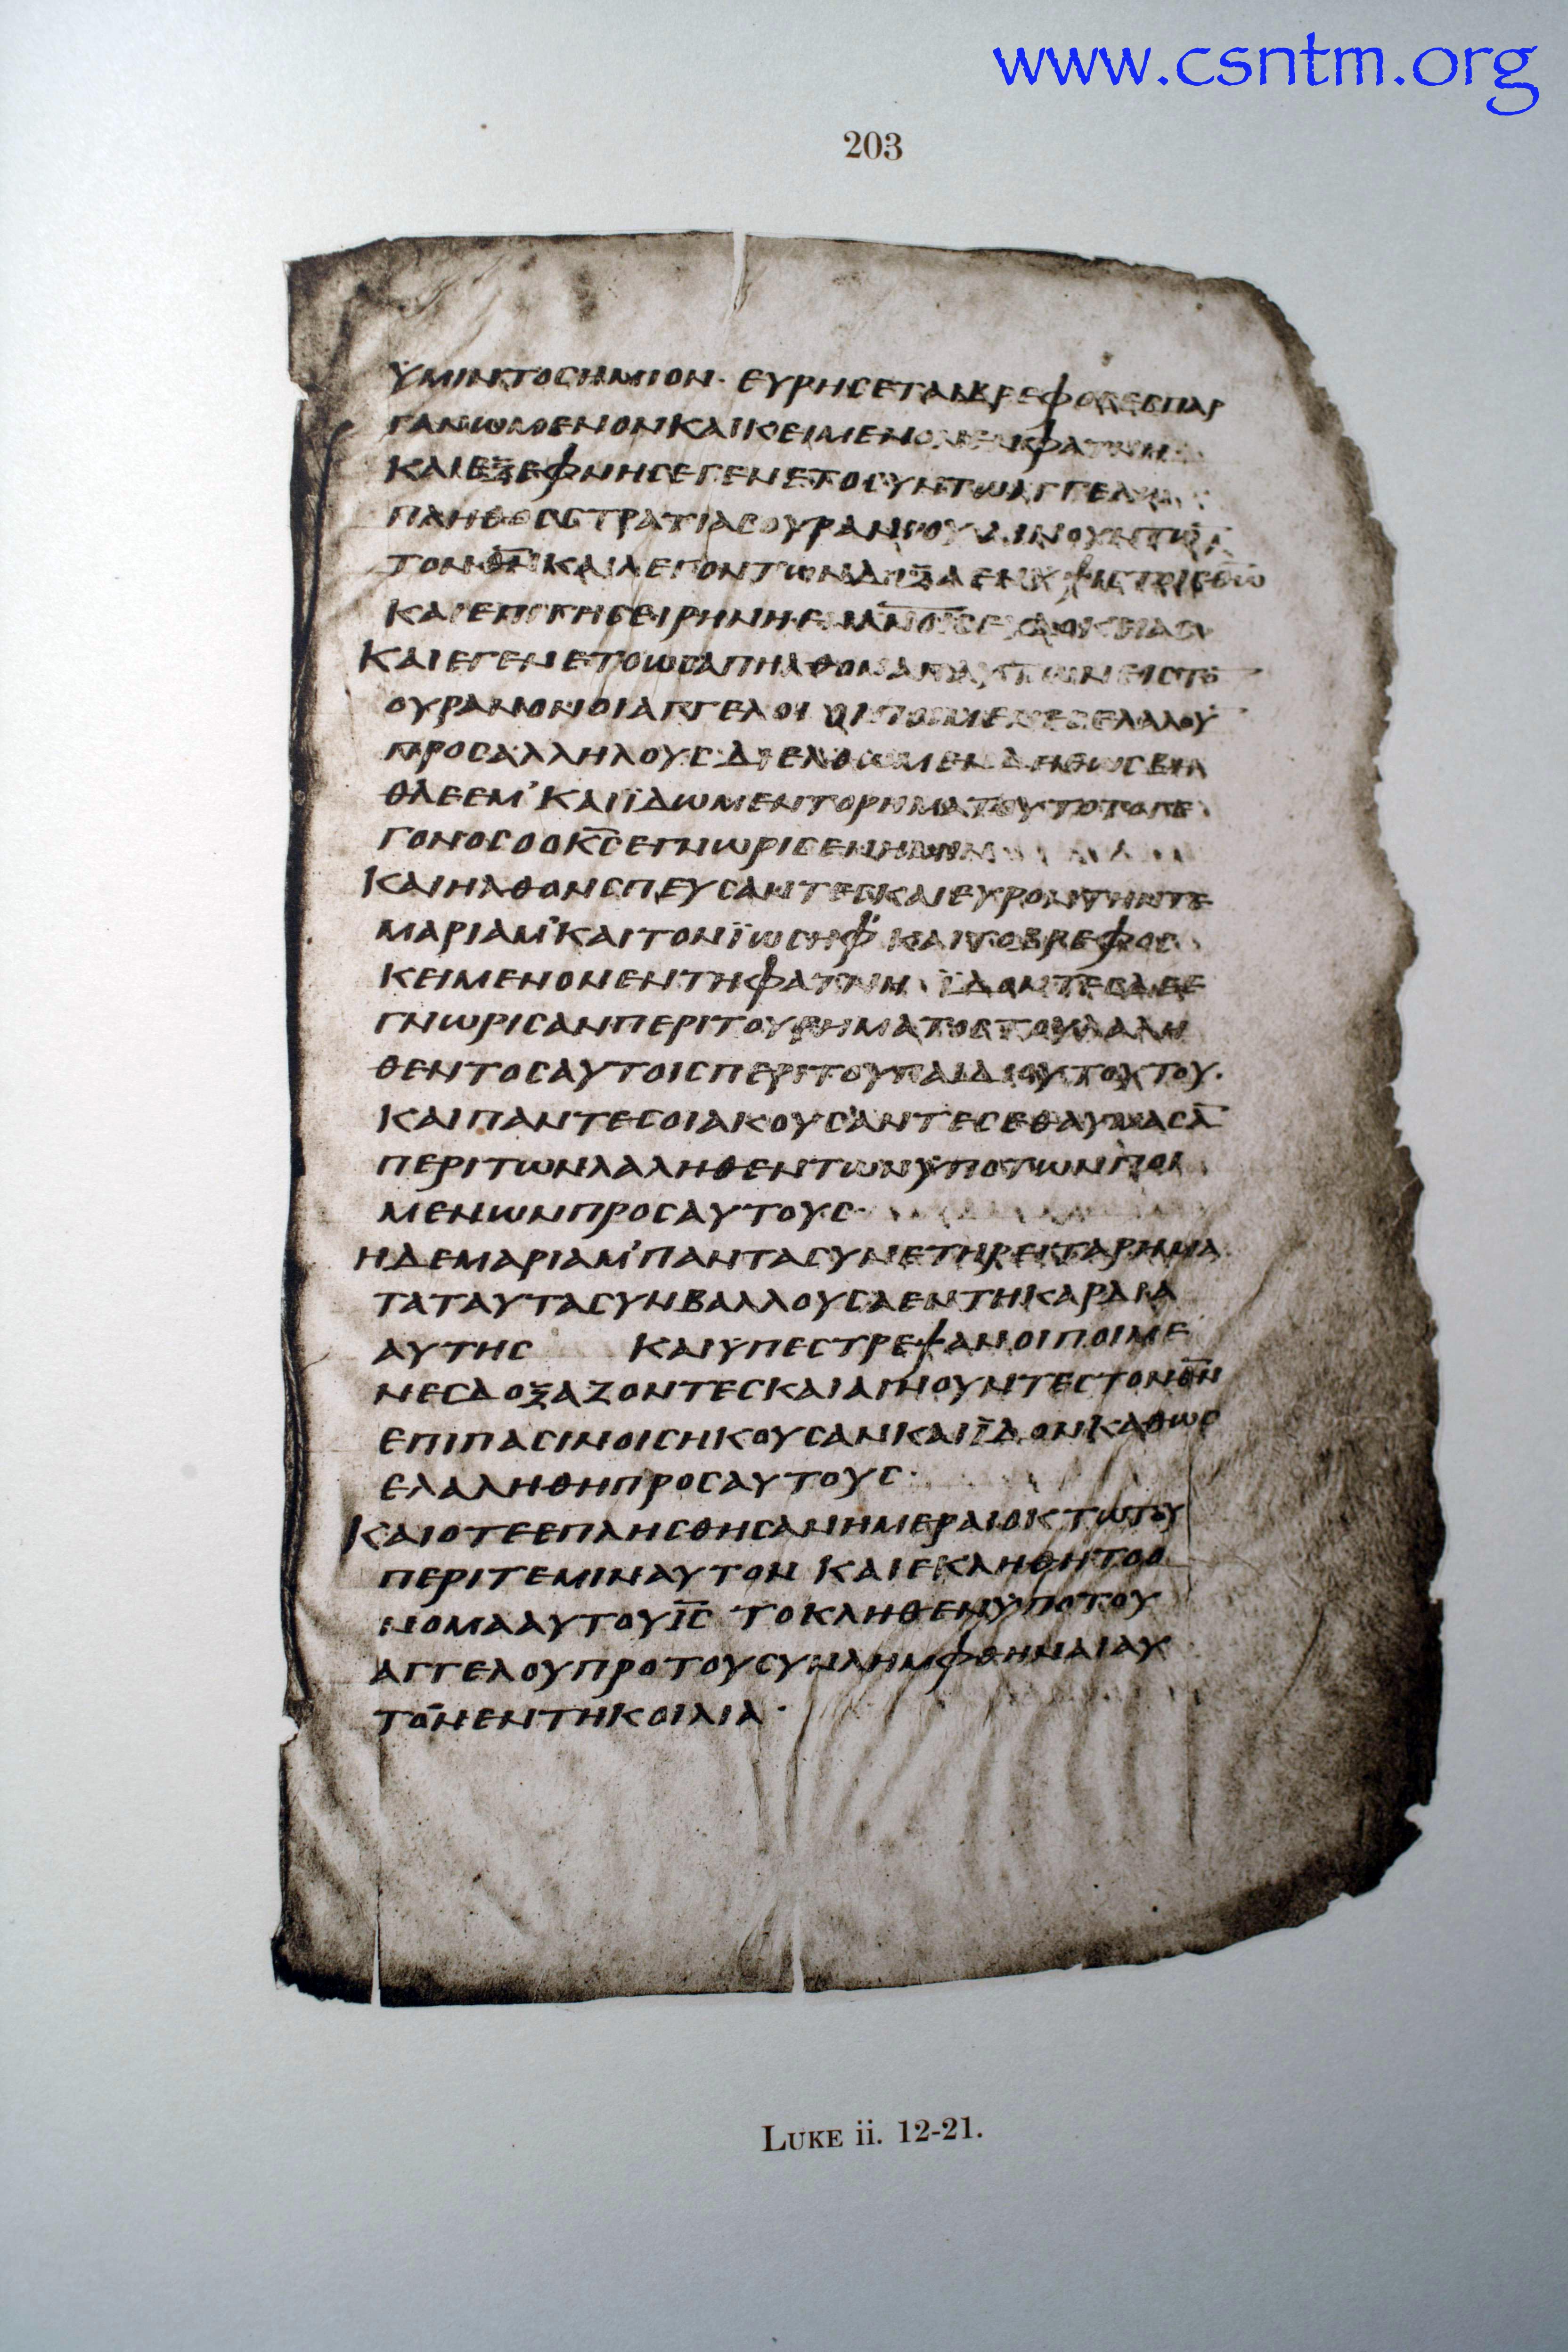 www.csntm.org
203
ΫΜΙΝΤΟϹΗΜΙΟΝ· ΕΥΡΗϹΕΤΑΙΒΡΕΦΟϹΕϹΠΑΡ
ΓΑΝΩΜΕΝΟΝΚΑΙΚΕΙΜΕΝΟΝΕΝΦΑΤΝΗ·
ΚΑΙΕΞΕΦΝΗϹΕΓΕΝΕΤΟϹΥΝΤΩΑΓΓΕΛΩ
ΠΛΗΘΟϹϹΤΡΑΤΙΑϹΟΥΡΑΝΙΟΥΑΙΝΟΥΝΤΩ̅
ΤΟΝΘ̅Ν̅ΚΑΙΛΕΓΟΝΤΩΝΔΟΞΑΕΝΥΨΙϹΤΟΙϹΘ̅Ω̅
ΚΑΙΕΠΙΓΗϹΕΙΡΗΝΗΕΝΑ̅Ν̅Ο̅Ι̅Ϲ̅ΕΥΔΟΚΕΙΑϹ
ΚΑΙΕΓΕΝΕΤΟΩϹΑΠΗΛΘΟΝΑΠΑΥΤΩΝΕΙϹΤΟ̅
ΟΥΡΑΝΟΝΟΙΑΓΓΕΛΟΙ ΟΙΠΟΙΜΕΝΕϹΕΛΑΛΟΥ̅
ΠΡΟϹΑΛΛΗΛΟΥϹ·ΔΙΕΛΘΩΜΕΝΔΗΘΩϹΒΗ
ΘΛΕΕΜ’ΚΑΙΪΔΩΜΕΝΤΟΡΗΜΑΤΟΥΤΟΤΟΓΕ
ΓΟΝΟϹΟΟΚ̅Ϲ̅ΕΓΝΩΡΙϹΕΝΗΜΙΝ
ΚΑΙΗΛΘΟΝϹΠΕΥϹΑΝΤΕϹΚΑΙΕΥΡΟΝΤΗΝΤΕ
ΜΑΡΙΑΜ’ΚΑΙΤΟΝΪΩϹΗΦ’ ΚΑΙΤΟΒΡΕΦΟϹ
ΚΕΙΜΕΝΟΝΕΝΤΗΦΑΤΝΗ ΪΔΟΝΤΕϹΔΕΕ
ΓΝΩΡΙϹΑΝΠΕΡΙΤΟΥΡΗΜΑΤΟϹΤΟΥΛΑΛΗ
ΘΕΝΤΟϹΑΥΤΟΙϹΠΕΡΙΤΟΥΠΑΙΔΙΟΥΤΟΥΤΟΥ·
ΚΑΙΠΑΝΤΕϹΟΙΑΚΟΥϹΑΝΤΕϹΕΘΑΥΜΑϹΑ̅
ΠΕΡΙΤΩΝΛΑΛΗΘΕΝΤΩΝΫΠΟΤΩΝΠΟΙ
ΜΕΝΩΝΠΡΟϹΑΥΤΟΥϹ·
ΗΔΕΜΑΡΙΑΜ’ΠΑΝΤΑϹΥΝΕΤΗΡΕΙΤΑΡΗΜΑ
ΤΑΤΑΥΤΑϹΥΝΒΑΛΛΟΥϹΑΕΝΤΗΚΑΡΔΙΑ
ΑΥΤΗϹ ΚΑΙΫΠΕϹΤΡΕΨΑΝΟΙΠΟΙΜΕ
ΝΕϹΔΟΞΑΖΟΝΤΕϹΚΑΙΑΙΝΟΥΝΤΕϹΤΟΝΘ̅Ν̅
ΕΠΙΠΑϹΙΝΟΙϹΗΚΟΥϹΑΝΚΑΙΪΔΟΝΚΑΘΩϹ
ΕΛΑΛΗΘΗΠΡΟϹΑΥΤΟΥϹ·
ΚΑΙΟΤΕΕΠΛΗϹΘΗϹΑΝΗΜΕΡΑΙΟΚΤΩΤΟΥ
ΠΕΡΙΤΕΜΙΝΑΥΤΟΝ ΚΑΙΕΚΛΗΘΗΤΟΟ
ΝΟΜΑΑΥΤΟΥΙ̅Ϲ̅ ΤΟΚΛΗΘΕΝΫΠΟΤΟΥ
ΑΓΓΕΛΟΥΠΡΟΤΟΥϹΥΝΛΗΜΦΘΗΝΑΙΑΥ
ΤΟ̅ΝΕΝΤΗΚΟΙΛΙΑ·
LUKE ii. 12-21.